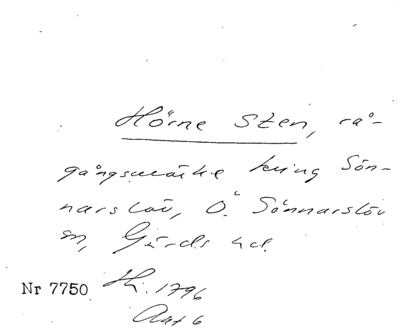 Hörne Sten, rå-
gångsmärke kring Sön-
narslöv, Ö. Sönnarslöv
sn, Gärds hd.
Nr 7750 Lk. 1796
Akt 6